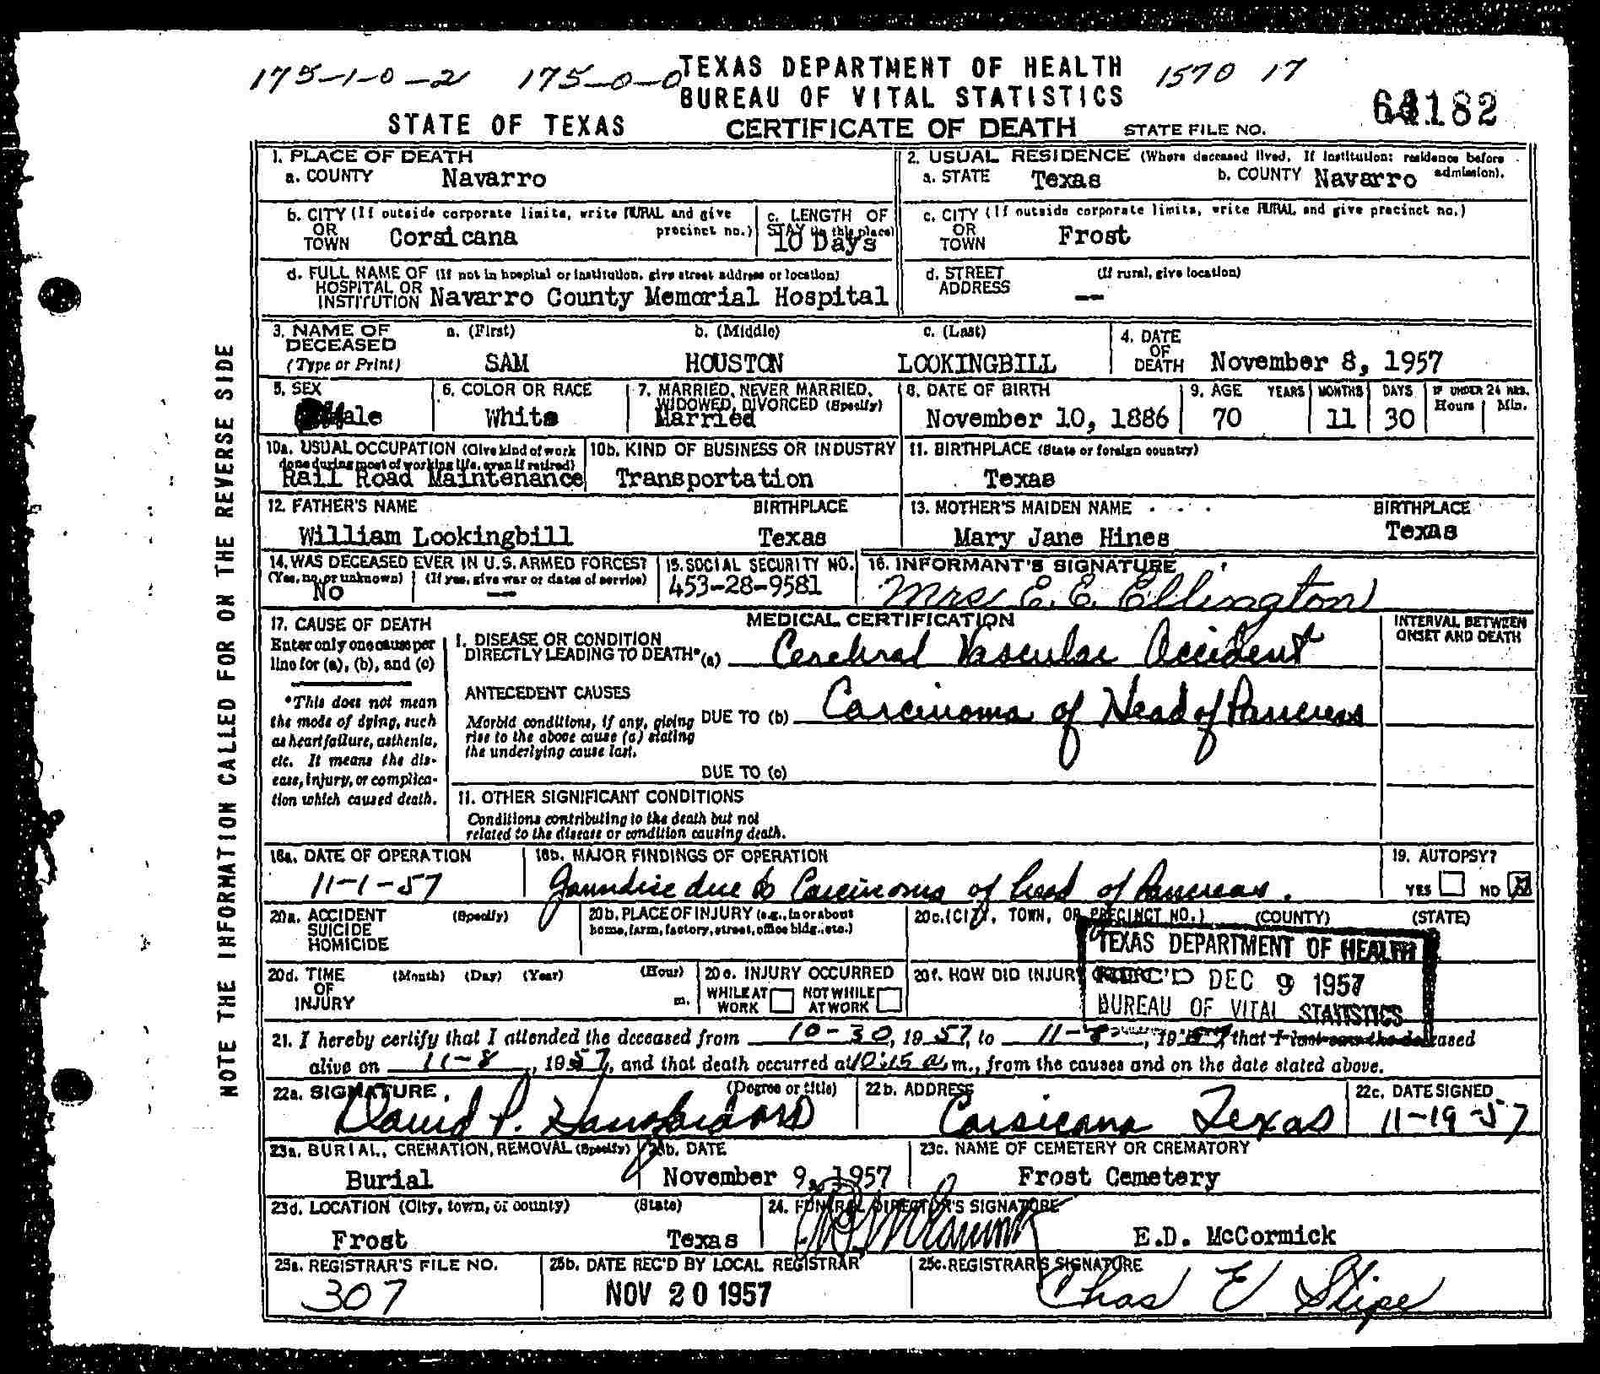 175-1-0-2 175-0-0 TEXAS DEPARTMENT OF HEALTH 1570 17
BUREAU OF VITAL STATISTICS
STATE OF TEXAS CERTIFICATE OF DEATH STATE FILE NO. 182
1. PLACE OF DEATH
a. COUNTY Navarro
2. USUAL RESIDENCE (Where deceased lived. If institution: residence before admission).
a. STATE Texas b. COUNTY Navarro
b. CITY (If outside corporate limits, write RURAL and give precinct no.)
OR
TOWN Corsicana
c. LENGTH OF
STAY (in this place)
10 Days
c. CITY (If outside corporate limits, write RURAL and give precinct no.)
OR
TOWN Frost
d. FULL NAME OF (If not in hospital or institution, give street address or location)
HOSPITAL OR
INSTITUTION Navarro County Memorial Hospital
d. STREET (If rural, give location)
ADDRESS --
3. NAME OF DECEASED a. (First) b. (Middle) c. (Last)
(Type or Print) SAM HOUSTON LOOKINGBILL
4. DATE
OF
DEATH November 8, 1957
5. SEX
Male
6. COLOR OR RACE
White
7. MARRIED, NEVER MARRIED,
WIDOWED, DIVORCED (Specify)
Married
8. DATE OF BIRTH
November 10, 1886
9. AGE YEARS MONTHS DAYS IF UNDER 24 HRS.
Hours Min.
70 11 30
10a. USUAL OCCUPATION (Give kind of work
done during most of working life, even if retired)
Rail Road Maintenance
10b. KIND OF BUSINESS OR INDUSTRY
Transportation
11. BIRTHPLACE (State or foreign country)
Texas
12. FATHER'S NAME BIRTHPLACE
William Lookingbill Texas
13. MOTHER'S MAIDEN NAME BIRTHPLACE
Mary Jane Hines Texas
14. WAS DECEASED EVER IN U.S. ARMED FORCES?
(Yes, no, or unknown) (If yes, give war or dates of service)
No --
15. SOCIAL SECURITY NO.
453-28-9581
16. INFORMANT'S SIGNATURE
Mrs E. E. Ellington
17. CAUSE OF DEATH
Enter only one cause per
line for (a), (b), and (c)
*This does not mean
the mode of dying, such
as heart failure, asthenia,
etc. It means the dis-
ease, injury, or complica-
tion which caused death.
MEDICAL CERTIFICATION
INTERVAL BETWEEN
ONSET AND DEATH
I. DISEASE OR CONDITION
DIRECTLY LEADING TO DEATH*(a) Cerebral Vascular Accident
ANTECEDENT CAUSES
Morbid conditions, if any, giving
rise to the above cause (a) stating
the underlying cause last.
DUE TO (b) Carcinoma of Head of Pancreas
DUE TO (c)
11. OTHER SIGNIFICANT CONDITIONS
Conditions contributing to the death but not
related to the disease or condition causing death.
18a. DATE OF OPERATION
11-1-57
18b. MAJOR FINDINGS OF OPERATION
Jaundice due to Carcinoma of head of Pancreas.
19. AUTOPSY?
YES NO X
20a. ACCIDENT (Specify)
SUICIDE
HOMICIDE
20b. PLACE OF INJURY (e.g., in or about
home, farm, factory, street, office bldg., etc.)
20c. (CITY, TOWN, OR PRECINCT NO.) (COUNTY) (STATE)
20d. TIME (Month) (Day) (Year) (Hour)
OF
INJURY m.
20e. INJURY OCCURRED
WHILE AT WORK NOT WHILE AT WORK
20f. HOW DID INJURY
TEXAS DEPARTMENT OF HEALTH
REC'D DEC 9 1957
BUREAU OF VITAL STATISTICS
21. I hereby certify that I attended the deceased from 10-30, 1957, to 11-8, 1957, that I last saw the deceased
alive on 11-8, 1957, and that death occurred at 10:15 a m., from the causes and on the date stated above.
22a. SIGNATURE (Degree or title)
David P.
22b. ADDRESS
Corsicana Texas
22c. DATE SIGNED
11-19-57
23a. BURIAL, CREMATION, REMOVAL (Specify)
Burial
23b. DATE
November 9, 1957
23c. NAME OF CEMETERY OR CREMATORY
Frost Cemetery
23d. LOCATION (City, town, or county) (State)
Frost Texas
24. FUNERAL DIRECTOR'S SIGNATURE
E.D. McCormick
25a. REGISTRAR'S FILE NO.
307
25b. DATE REC'D BY LOCAL REGISTRAR
NOV 20 1957
25c. REGISTRAR'S SIGNATURE
Chas E Stipe
NOTE THE INFORMATION CALLED FOR ON THE REVERSE SIDE